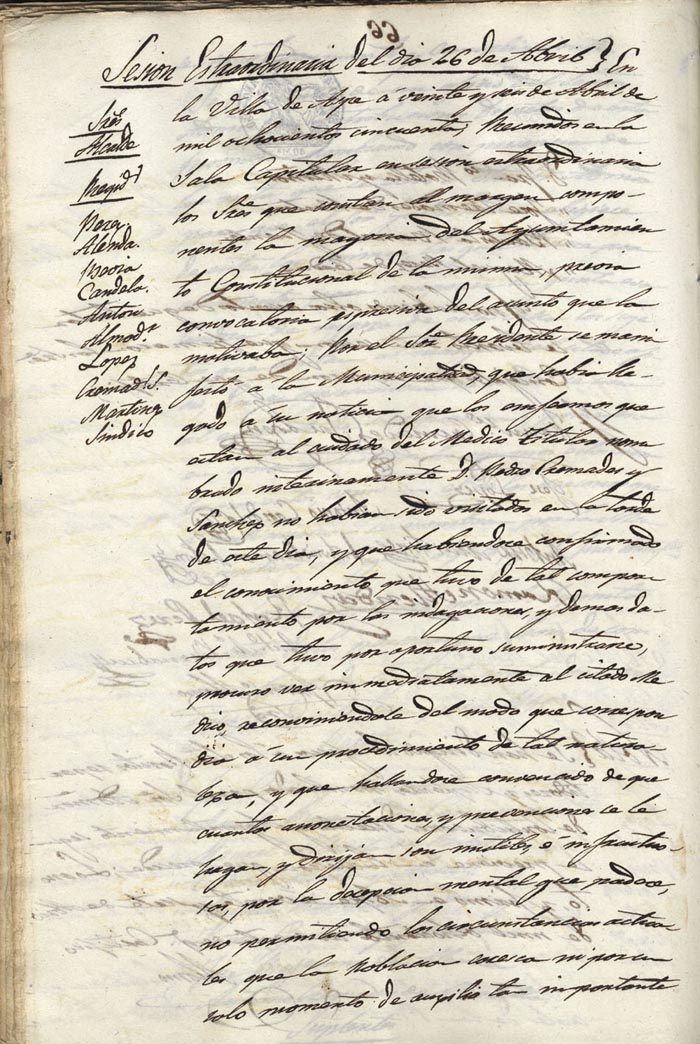 Sesion Estraordinaria del dia 26 de Abril } En
la Villa de Aspe á veinte y seis de Abril de
mil ochocientos cincuenta; Reunidos en la
Sala Capitular en sesion estraordinaria
los Sres que constan al margen compo-
nentes la mayoria del Ayuntamien
to Constitucional de la misma, previa
convocatoria espresiva del asunto que la
motivaba; Por el Sor Presidente se mani
festó á la Municipalidad, que habia lle
gado á su noticia que los enfermos que
estan al cuidado del Medico titular nom
brado interinamente D. Pedro Cremades y
Sanchez no habian sido visitados en la tarde
de este dia, y que habiendose confirmado
el conocimiento que tuvo de tal compor
tamiento por las indagaciones, y demas da-
tos que tuvo por oportuno suministrarse,
procuro ver inmediatamente al citado Me
dico, reconviniendole del modo que correspon
dia á un procedimiento de tal natura
leza, y que hallandose convencido de que
cuantas amonestaciones, y prevenciones se le
hagan, y dirijan son inutiles, é infructuo-
sas, por la decepcion mental que padece,
no permitiendo las circunstancias actua
les que la Poblacion caresca ni por un
solo momento de auxilio tan importante
Sres
Alcalde
Regids
Alenda.
Candela.
Anton
Almodr
Lopez
Cremads S.
Martinz
Sindico